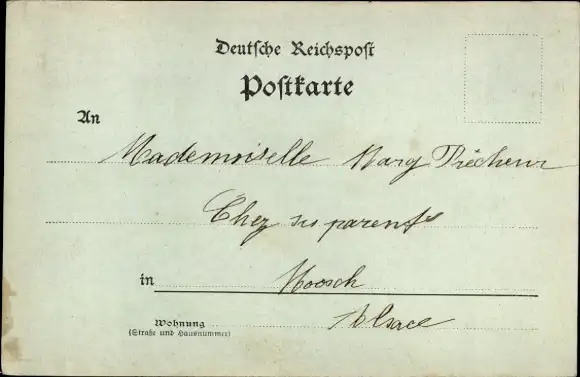 Deutsche Reichspost
Postkarte
An
Mademoiselle Mary Précheur
Chez ses parents
in Moosch
Alsace
Wohnung
(Straße und Hausnummer)